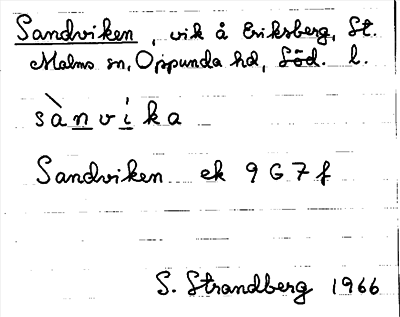 Sandviken, vik å Eriksberg, St.
Malms sn, Oppunda hd, Söd. l.
sànvíka
Sandviken ek 9G7f
S. Strandberg 1966